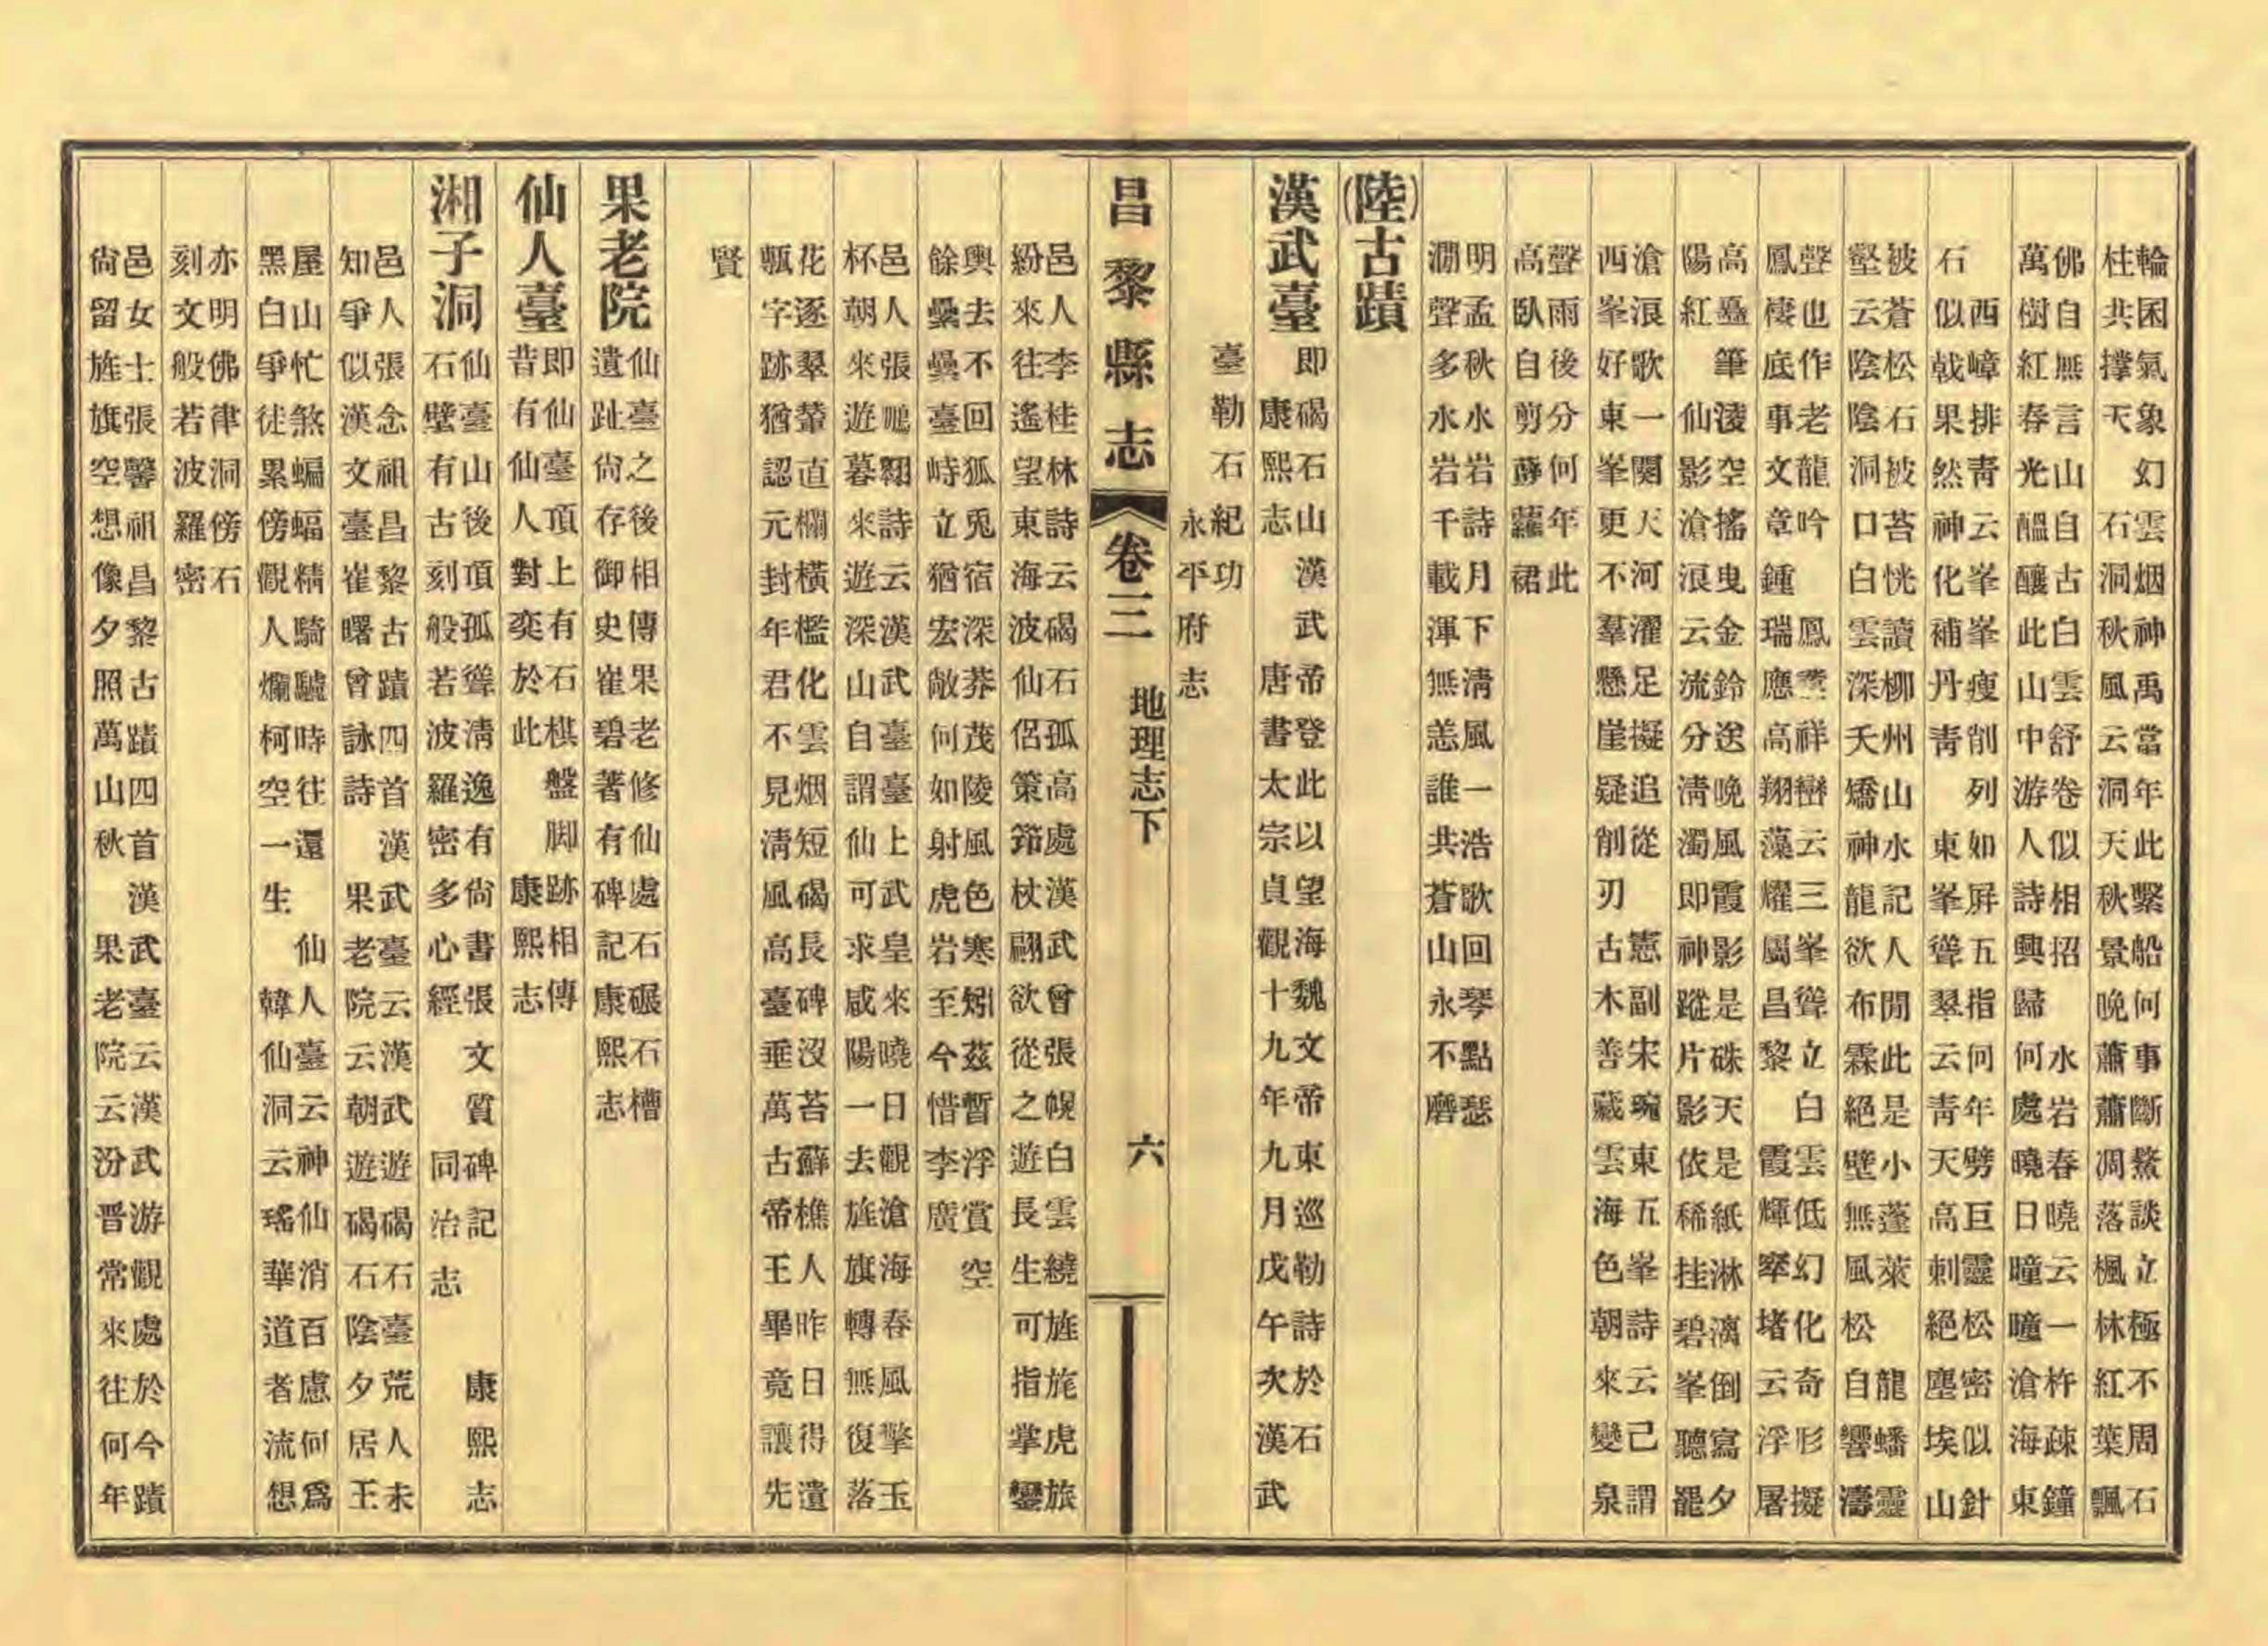 輪囷氣象幻雲烟神禹當年此繫船何事斷鰲談立極不周石
柱共撐天　石洞秋風云洞天秋景晚蕭蕭凋落楓林紅葉飄
佛自無言山自古白雲舒卷似相招　水岩春曉云一杵疎鐘
萬樹紅春光醞釀此山中游人詩興歸何處曉日曈曈滄海東
西嶂排青云峯峯瘦削列如屏五指何年劈巨靈松密似針
石似戟果然神化補丹青　東峯聳翠云青天高刺絕塵埃山
被蒼松石被苔恍讀柳州山水記人間此是小蓬萊　龍蟠靈
壑云陰陰洞口白雲深夭矯神龍欲布霖絕壁無風松自響濤
聲也作老龍吟　鳳翥祥巒云三峯聳立白雲低幻化奇形擬
鳳棲底事文章鍾瑞應高翔藻耀屬昌黎　霞輝窣堵云浮屠
高矗筆凌空搖曳金鈴送晚風霞影是硃天是紙淋漓倒寫夕
陽紅　仙影滄浪云流分清濁即神蹤片影依稀挂碧峯聽罷
滄浪歌一闋天河濯足擬追從　憲副宋琬東五峯詩云己謂
西峯好東峯更不羣懸崖疑削刃古木善藏雲海色朝來變泉
聲雨後分何年此
高臥自剪薜蘿裙
明孟秋水岩詩月下清風一浩歌回琴點瑟
澗聲多水岩千載渾無恙誰共蒼山永不磨
(陸)古蹟
漢武臺　即碣石山漢武帝登此以望海魏文帝東巡勒詩於石
康熙志　唐書太宗貞觀十九年九月戊午次漢武
臺勒石紀功
永平府志
昌黎縣志　卷三　地理志下　六
邑人李桂林詩云碣石孤高處漢武曾張幌白雲繞旌旄虎旅
紛來往遙望東海波仙侶策筇杖翩欲從之遊長生可指掌鑾
輿去不回狐兎宿深莽茂陵風色寒矧茲暫浮賞　空
餘纍纍臺峙立猶宏敞何如射虎岩至今惜李廣
邑人張鳴翺詩云漢武臺臺上武皇來曉日觀滄海春風擎玉
杯朝來遊暮來遊深山自謂仙可求咸陽一去旌旗轉無復落
花逐翠輦直欄橫檻化雲烟短碣長碑沒苔蘚樵人昨日得遺
甎字跡猶認元封年君不見清風高臺垂萬古帝王畢竟讓先
賢
果老院　仙臺之後相傳果老修仙處石碾石槽
遺趾尙存御史崔碧著有碑記康熙志
仙人臺　即仙臺頂上有石棋盤脚跡相傳
昔有仙人對奕於此　康熙志
湘子洞　仙臺山後頂孤聳清逸有尙書張文質碑記　康熙志
石壁有古刻般若波羅密多心經　同治志
邑人張念祖昌黎古蹟四首　漢武臺云漢武遊碣石臺荒人未
知爭似漢文臺崔曙曾詠詩　果老院云朝遊碣石陰夕居王
屋山忙煞蝙蝠精騎驢時往還　仙人臺云神仙消百慮何爲
黑白爭徒累傍觀人爛柯空一生　韓仙洞云瑤華道者流想
亦明佛律洞傍石
刻文般若波羅密
邑女士張馨祖昌黎古蹟四首　漢武臺云漢武游觀處於今蹟
尙留旌旗空想像夕照萬山秋　果老院云汾晋常來往何年